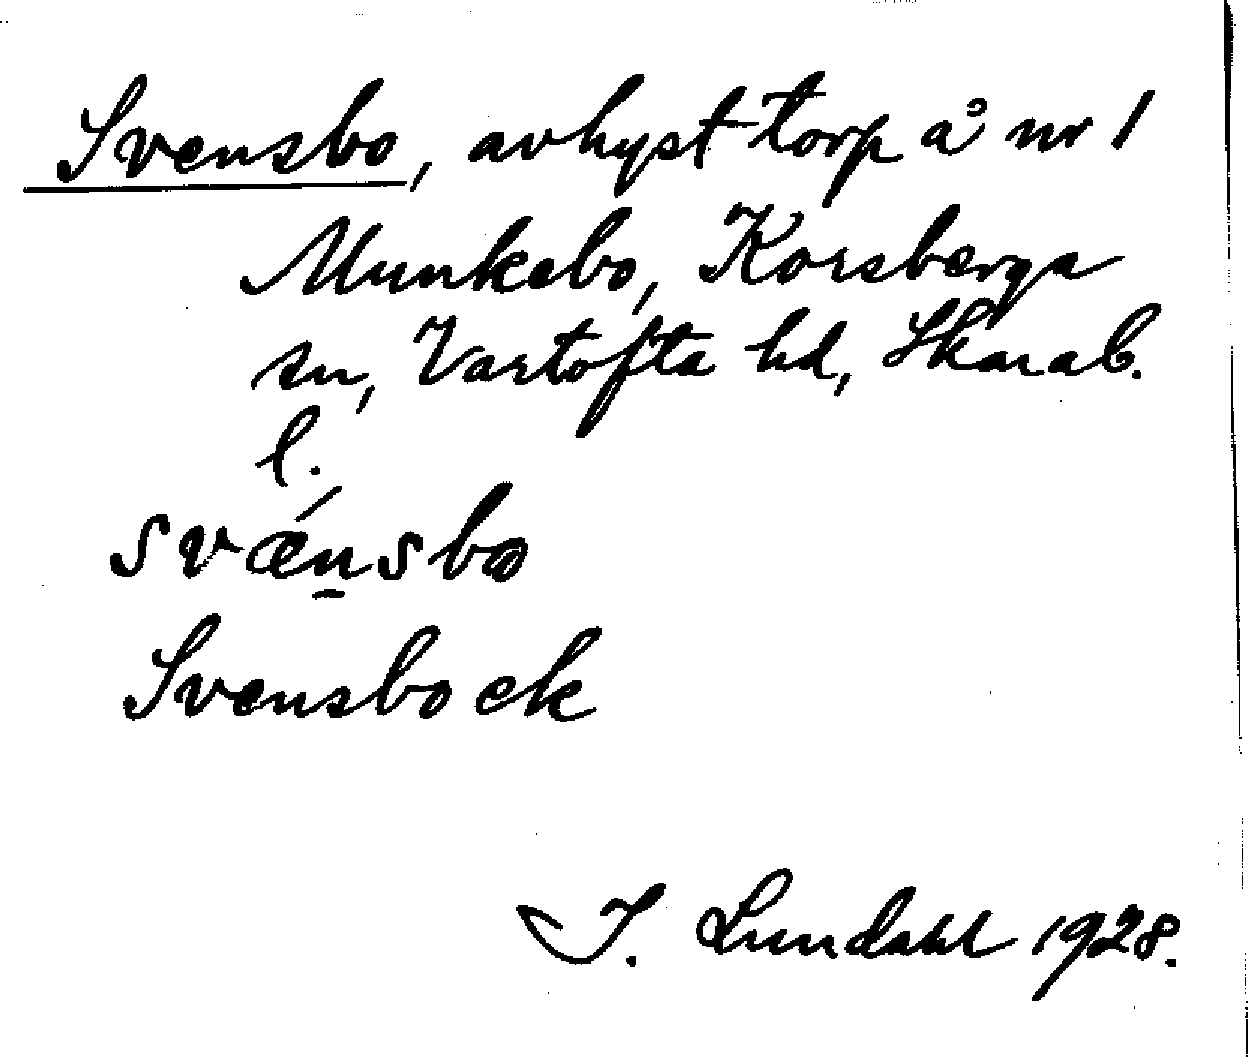 Svensbo, avhyst torp å nr 1
Munkebo, Korsberga
sn, Vartofta hd, Skarab.
l.
svǽnsbo
Svensbo ek
I. Lundahl 1928.